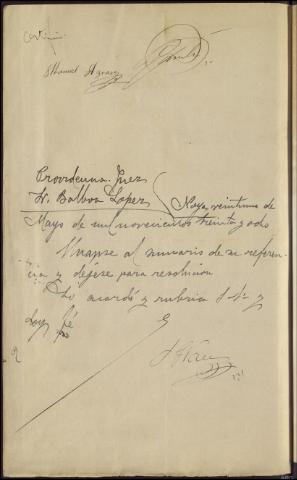 certifico.
Manuel Agrasar
Providencia Juez
H. Balboa Lopez Noya, veintiuno de
Mayo de mil novecientos treinta y ocho
Unase al sumario de su referen-
cia y dejese para resolución
Lo acordó y rubrica S. Sª y
doy fé